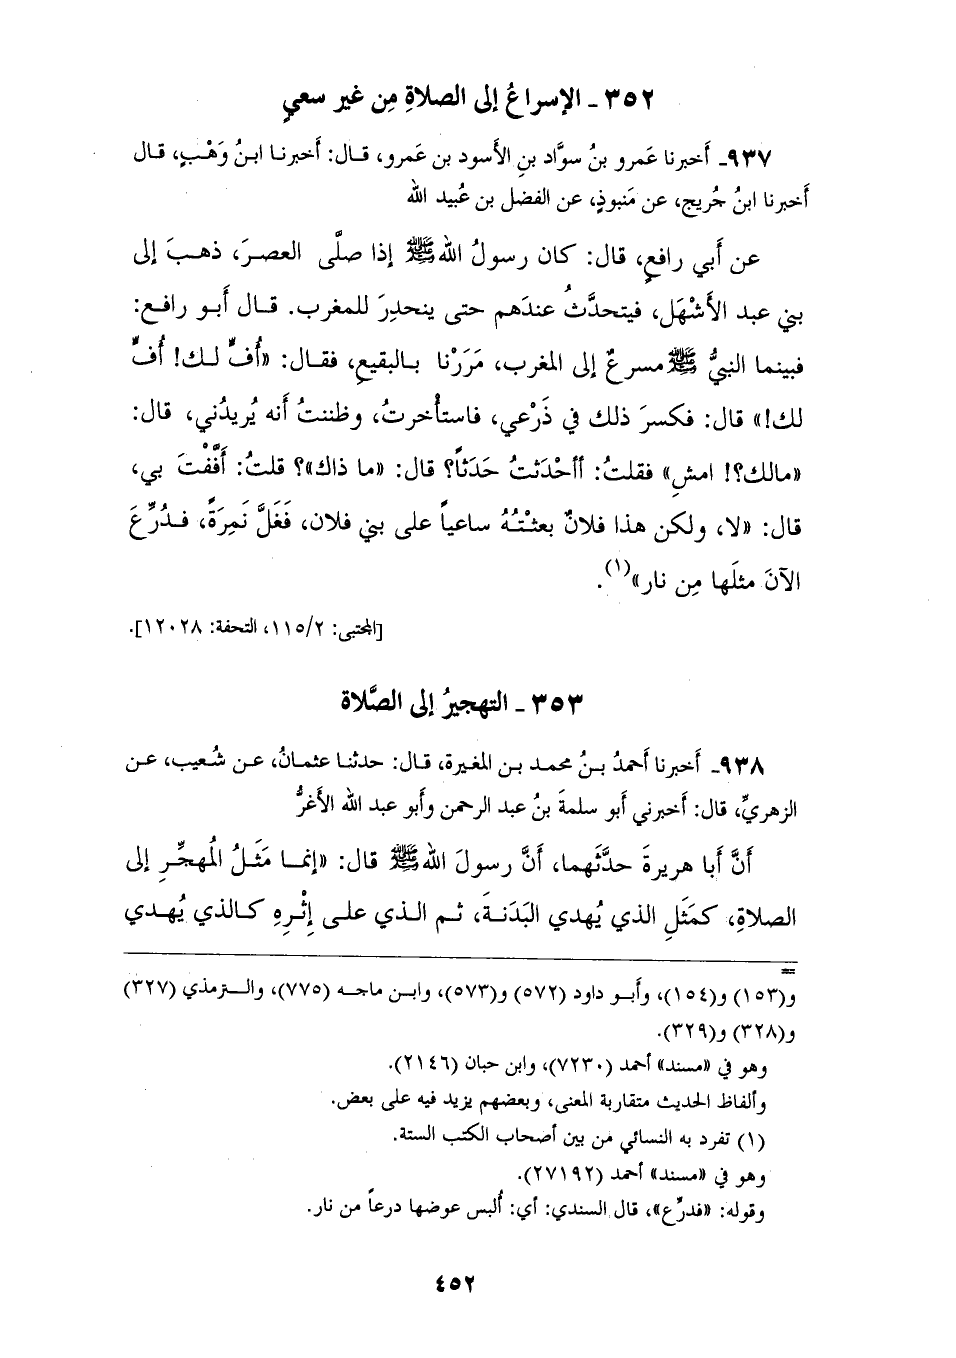 ٣٥٢ ـ الإسراعُ إلى الصلاةِ مِن غير سعيٍ
٩٣٧ـ أَخبرنا عَمرو بنُ سوَّاد بنِ الأسود بن عَمرو، قـال: أَخبرنـا ابـنُ وَهْـبٍ، قـال
أَخبرنا ابنُ جُريجٍ، عن مَنبوذٍ، عن الفضل بن عُبيد الله
عن أَبي رافعٍ، قال: كان رسولُ الله ﷺ إذا صلَّى العصرَ، ذهـبَ إلى
بني عبد الأَشْهَل، فيتحدَّثُ عندَهم حتى ينحدِرَ للمغرب. قـال أَبـو رافـع:
فبينما النبيُّ ﷺ مسرعٌ إلى المغربِ، مَرَرْنا بـالبقيعِ، فقـال: «أُفٍّ لـك! أُفٍّ
لك!» قال: فكسرَ ذلك في ذَرْعي، فاستأْخرتُ، وظننتُ أَنه يُريدُني، قال:
«مالك؟! امشِ» فقلتُ: أَأَحْدَثتُ حَدَثاً؟ قال: «ما ذاك»؟ قلتُ: أَفَّفْتَ بي،
قال: «لا، ولكن هذا فلانٌ بعثْتُهُ ساعياً على بني فلان، فَغَلَّ نَمِرَةً، فـدُرِّعَ
الآنَ مثلَها مِن نار»(١).
[المجتبى: ١١٥/٢، التحفة: ١٢٠٢٨].
٣٥٣ ـ التهجيرُ إلى الصَّلاة
٩٣٨ـ أَخبرنا أَحمدُ بـنُ محمـد بن المغيرة، قـال: حدثنـا عثمـانُ، عـن شُعيب، عـن
الزهريِّ، قال: أَخبرني أَبو سلمةَ بنُ عبد الرحمن وأَبو عبد الله الأَغرُّ
أَنَّ أَبا هريرةَ حدَّثَهما، أَنَّ رسولَ الله ﷺ قال: «إنمـا مَثَـلُ المُهجِّـرِ إلى
الصلاةِ، كمَثَلِ الذي يُهدي البَدَنـةَ، ثـم الـذي علـى إِثْـرِهِ كـالذي يُهـدي
=
و(١٥٣) و(١٥٤)، وأبـو داود (٥٧٢) و(٥٧٣)، وابـن ماجـه (٧٧٥)، والـترمذي (٣٢٧)
و(٣٢٨) و(٣٢٩).
وهو في «مسند» أحمد (٧٢٣٠)، وابن حبان (٢١٤٦).
وألفاظ الحديث متقاربة المعنى، وبعضهم يزيد فيه على بعض.
(١) تفرد به النسائي من بين أصحاب الكتب الستة.
وهو في «مسند» أحمد (٢٧١٩٢).
وقوله: «فدرِّع»، قال السندي: أي: أُلبس عوضها درعاً من نار.
٤٥٢